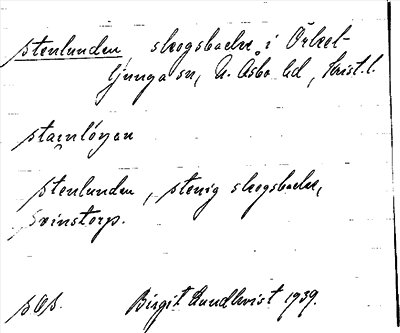 Stenlunden skogsbacke i Örkel-
ljunga sn, N. Åsbo hd, Krist. l.
Stenlunden, stenig skogsbacke,
Svinstorp.
Birgit Lundkvist 1939.